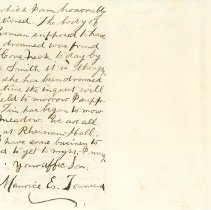 which I am honorably
tioned. The body of
woman supposed to have
drowned was found
Cove neck to day by
Smith it is though
she has been drowned
time the inquest will
held to morrow I supp
Tom has begun to mow
meadow. We are all
at Rhermans Hall.
I have some business to
d to yet to night. I may
Your affec Son.
Maurice E. Townsend